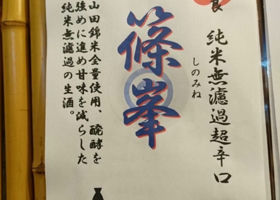 純米無濾過超辛口
篠峯
しのみね
山田錦米全量使用、醗酵を
強めに進め甘味を減らした
純米無濾過の生酒。